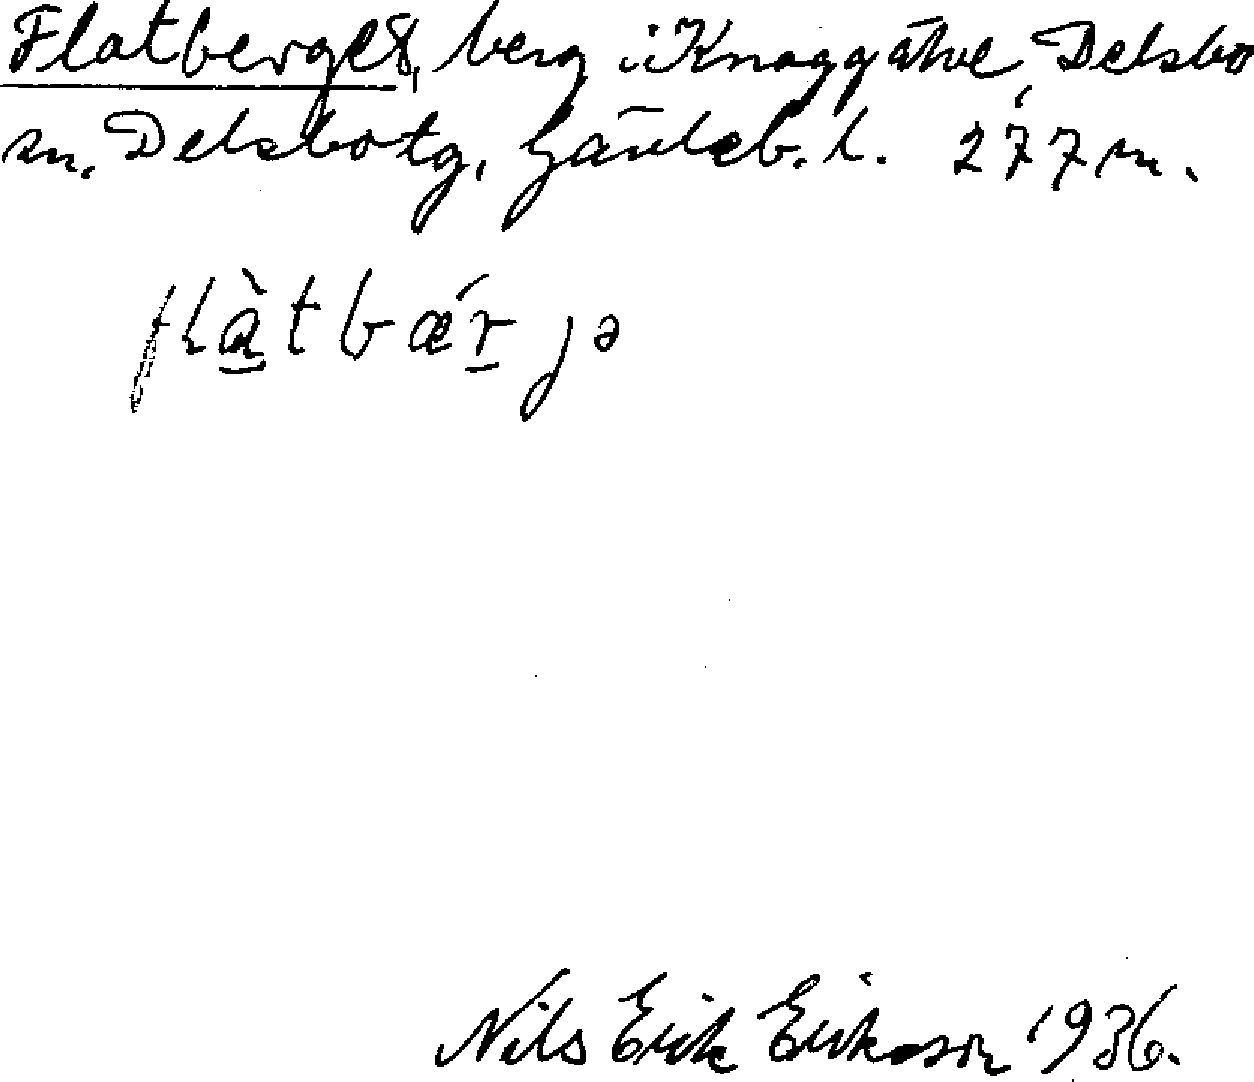 Flatberget, berg i Knaggälve, Delsbo
sn. Delsbotg, Gävleb. l. 277 m.
flàtbǽrjə
Nils Erik Eriksson 1936.